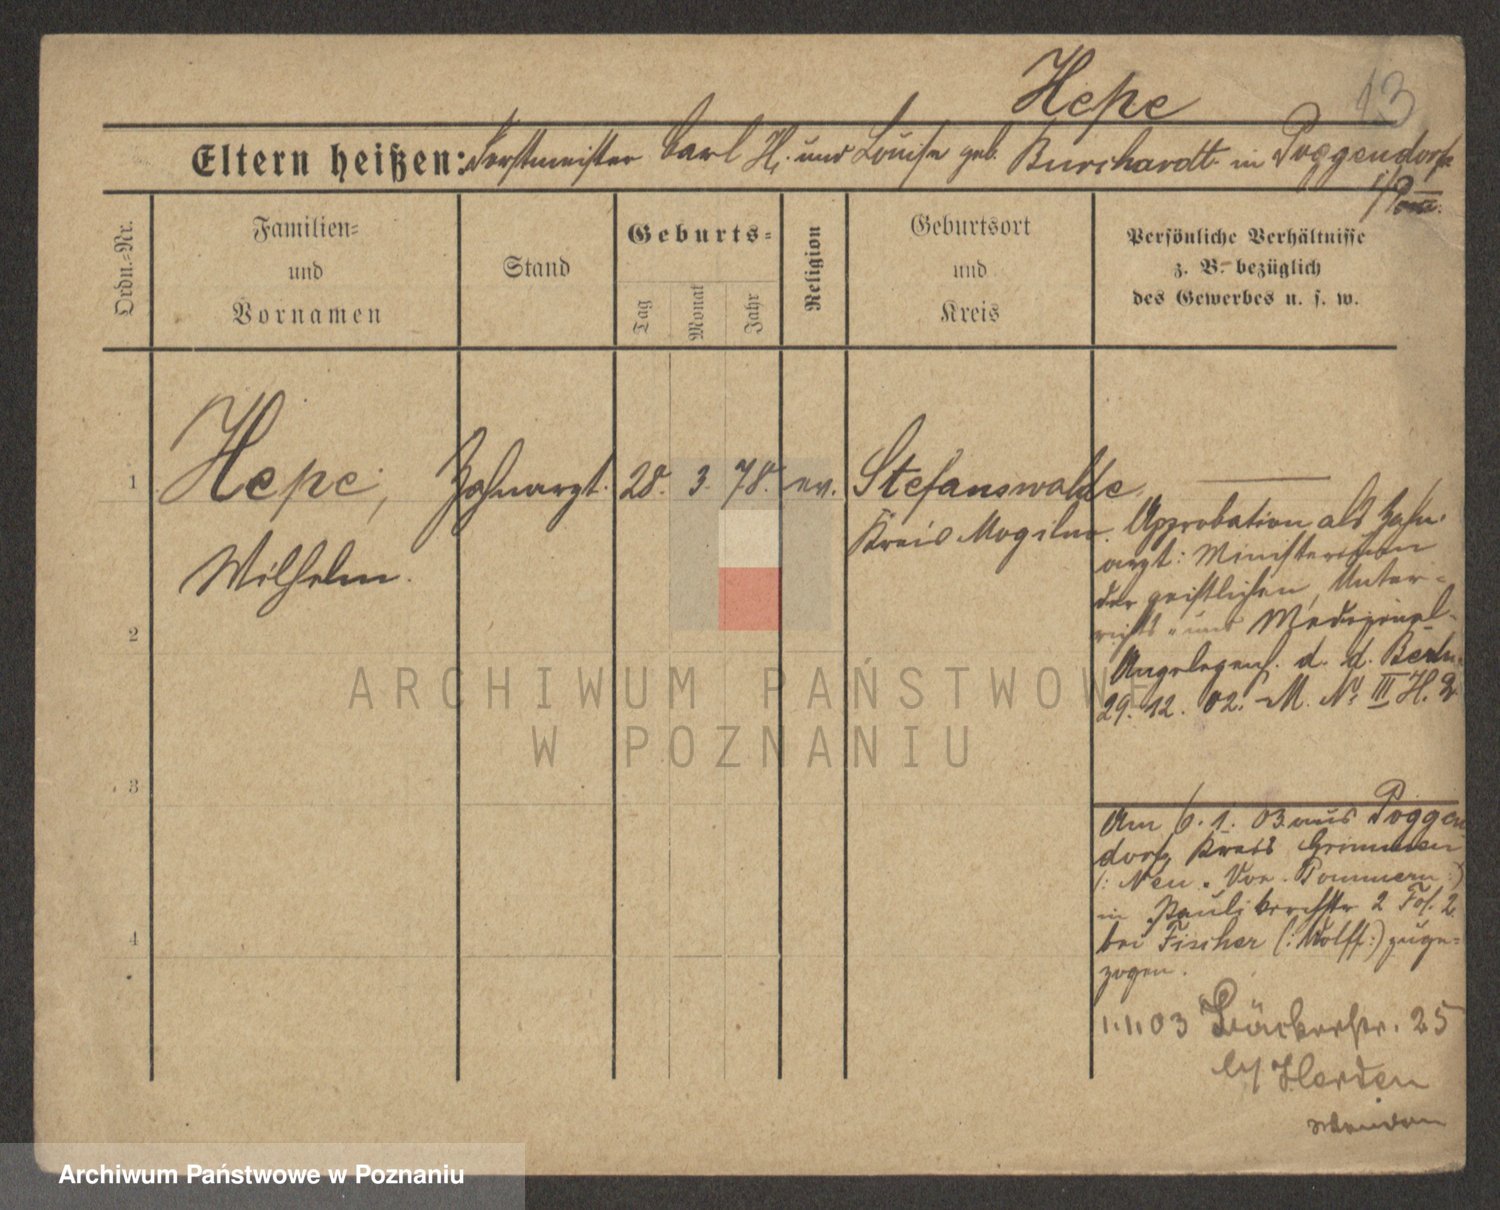 Hepe
13
Eltern heißen: Forstmeister Carl H. und Louise geb. Burchardt in Poggendorf
i/Pom.
Ordn.-Nr.
Familien-
und
Vornamen
Stand
Geburts-
Tag
Monat
Jahr
Religion
Geburtsort
und
Kreis
Persönliche Verhältnisse
z. B. bezüglich
des Gewerbes u. s. w.
1
Hepe,
Wilhelm.
Zahnarzt.
28. 3. 78.
ev.
Stefanswalde
Kreis Mogilno.
Approbation als Zahn-
arzt: Ministerium
der geistlichen, Unter-
richts- und Medizinal-
Angelegenh. d. d. Berlin
29. 12. 02. M. Nr. III H. 2
2
3
4
Am 6. 1. 03 aus Poggen
dorf Kreis Grimmen
(: Neu. Vor. Pommern :)
in Paulikirchstr 2
bei Fischer (: Wolff :) zuge-
zogen.
1.1.03 Bäckerstr. 25
b/ Herden
ARCHIWUM PAŃSTWOWE
W POZNANIU
Archiwum Państwowe w Poznaniu